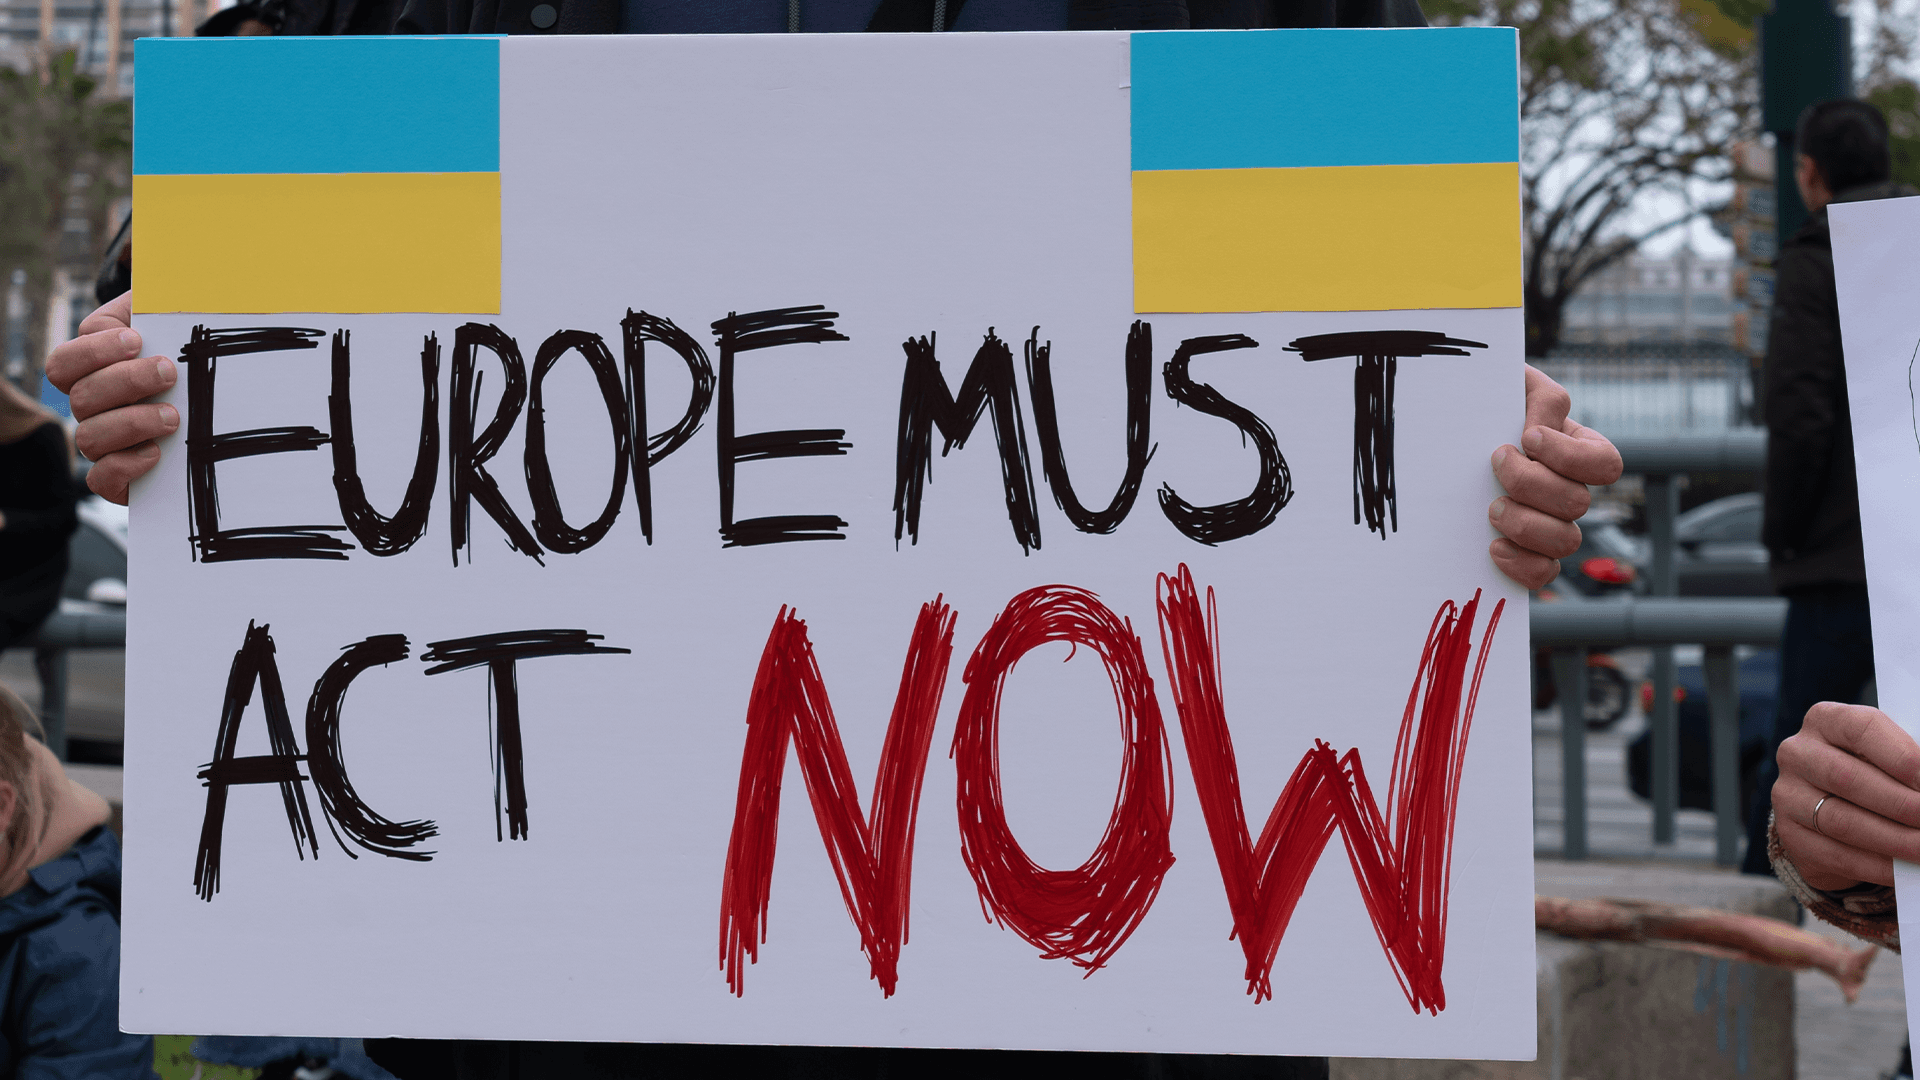 EUROPE MUST
ACT NOW